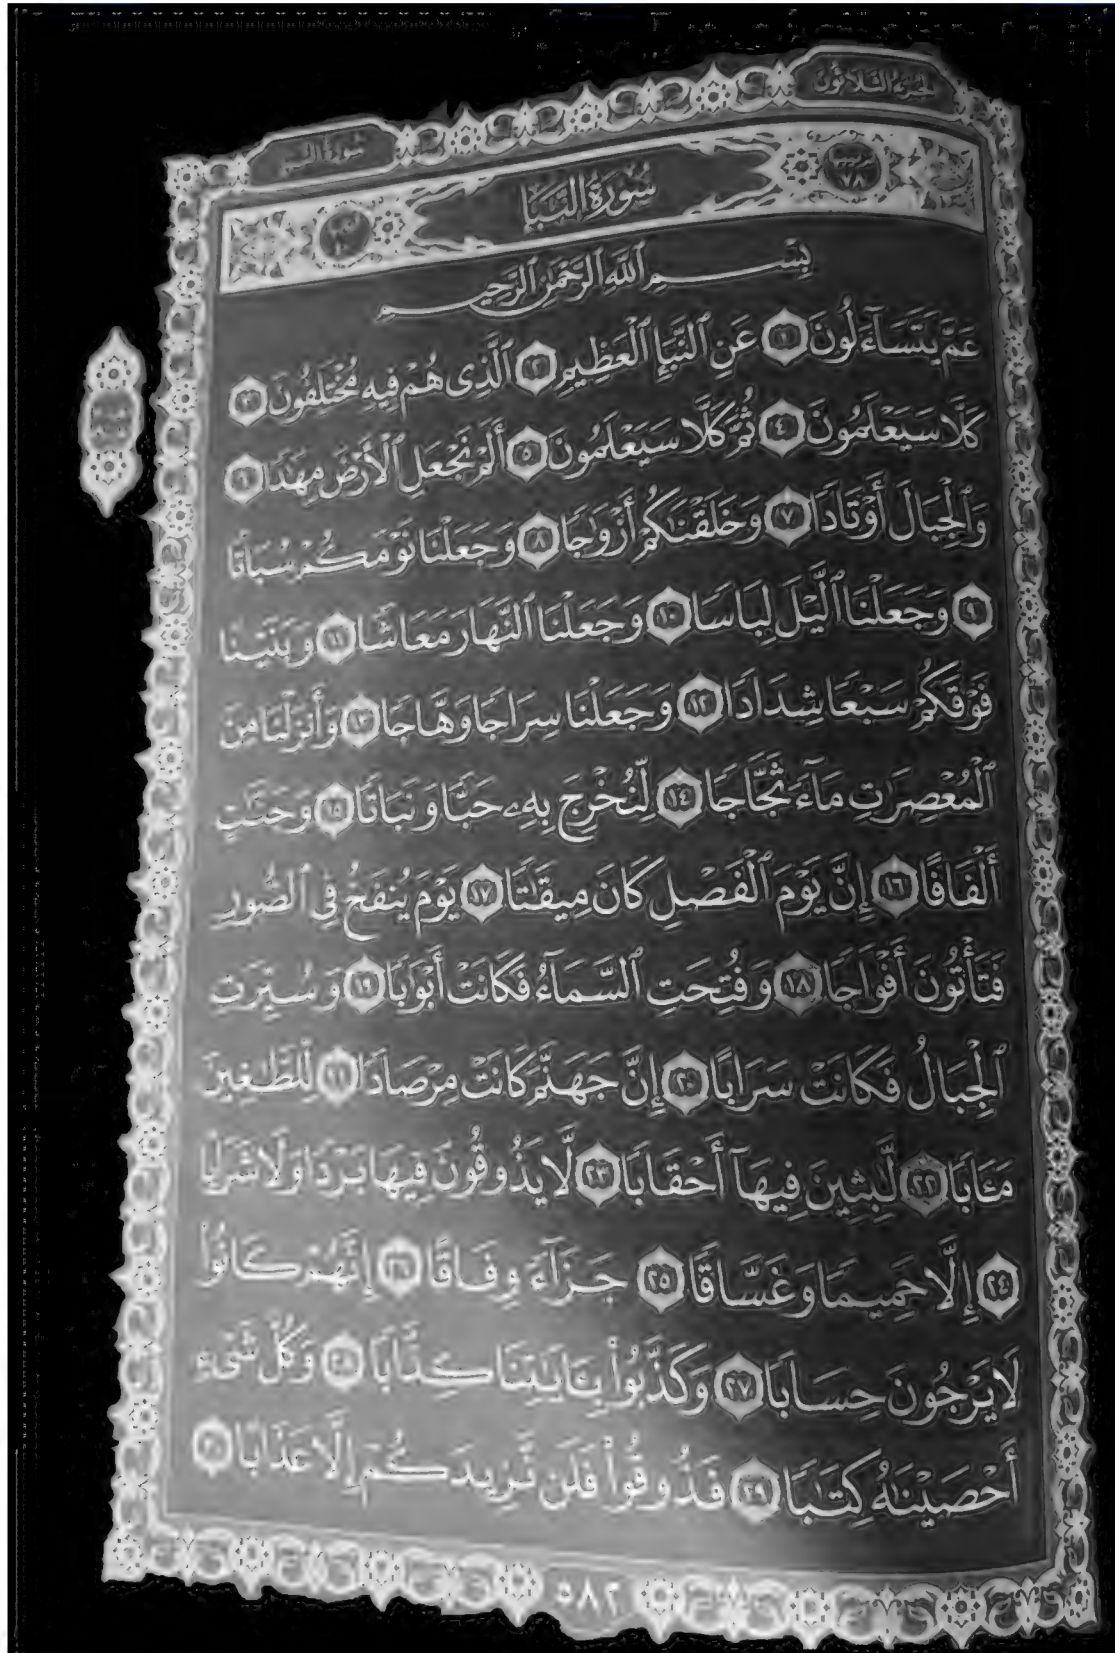 الجزء الثلاثون
سورة النبإ
ترتيبها ٧٨
سُورَةُ النَّبَإِ
بِسْمِ ٱللَّهِ ٱلرَّحْمَٰنِ ٱلرَّحِيمِ
عَمَّ يَتَسَآءَلُونَ ١ عَنِ ٱلنَّبَإِ ٱلْعَظِيمِ ٢ ٱلَّذِى هُمْ فِيهِ مُخْتَلِفُونَ ٣
كَلَّا سَيَعْلَمُونَ ٤ ثُمَّ كَلَّا سَيَعْلَمُونَ ٥ أَلَمْ نَجْعَلِ ٱلْأَرْضَ مِهَٰدًا ٦
وَٱلْجِبَالَ أَوْتَادًا ٧ وَخَلَقْنَٰكُمْ أَزْوَٰجًا ٨ وَجَعَلْنَا نَوْمَكُمْ سُبَاتًا
٩ وَجَعَلْنَا ٱلَّيْلَ لِبَاسًا ١٠ وَجَعَلْنَا ٱلنَّهَارَ مَعَاشًا ١١ وَبَنَيْنَا
فَوْقَكُمْ سَبْعًا شِدَادًا ١٢ وَجَعَلْنَا سِرَاجًا وَهَّاجًا ١٣ وَأَنزَلْنَا مِنَ
ٱلْمُعْصِرَٰتِ مَآءً ثَجَّاجًا ١٤ لِّنُخْرِجَ بِهِۦ حَبًّا وَنَبَاتًا ١٥ وَجَنَّٰتٍ
أَلْفَافًا ١٦ إِنَّ يَوْمَ ٱلْفَصْلِ كَانَ مِيقَٰتًا ١٧ يَوْمَ يُنفَخُ فِى ٱلصُّورِ
فَتَأْتُونَ أَفْوَاجًا ١٨ وَفُتِحَتِ ٱلسَّمَآءُ فَكَانَتْ أَبْوَٰبًا ١٩ وَسُيِّرَتِ
ٱلْجِبَالُ فَكَانَتْ سَرَابًا ٢٠ إِنَّ جَهَنَّمَ كَانَتْ مِرْصَادًا ٢١ لِّلطَّٰغِينَ
مَـَٔابًا ٢٢ لَّٰبِثِينَ فِيهَآ أَحْقَابًا ٢٣ لَّا يَذُوقُونَ فِيهَا بَرْدًا وَلَا شَرَابًا
٢٤ إِلَّا حَمِيمًا وَغَسَّاقًا ٢٥ جَزَآءً وِفَاقًا ٢٦ إِنَّهُمْ كَانُوا۟
لَا يَرْجُونَ حِسَابًا ٢٧ وَكَذَّبُوا۟ بِـَٔايَٰتِنَا كِذَّابًا ٢٨ وَكُلَّ شَىْءٍ
أَحْصَيْنَٰهُ كِتَٰبًا ٢٩ فَذُوقُوا۟ فَلَن نَّزِيدَكُمْ إِلَّا عَذَابًا ٣٠
٥٨٢